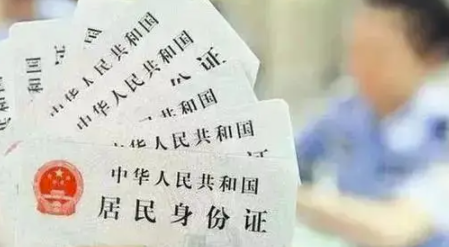 中华人民共和国
中华人民共和国
份证
人民共和国
共和国
中华人民共和国
居民身份证